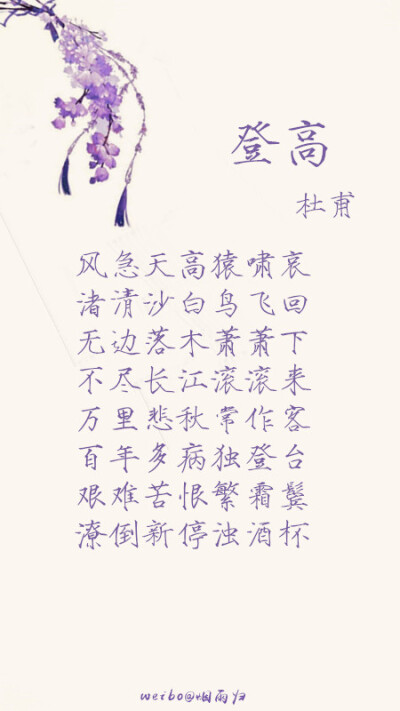 登高
杜甫
风急天高猿啸哀
渚清沙白鸟飞回
无边落木萧萧下
不尽长江滚滚来
万里悲秋常作客
百年多病独登台
艰难苦恨繁霜鬓
潦倒新停浊酒杯
weibo@烟雨归